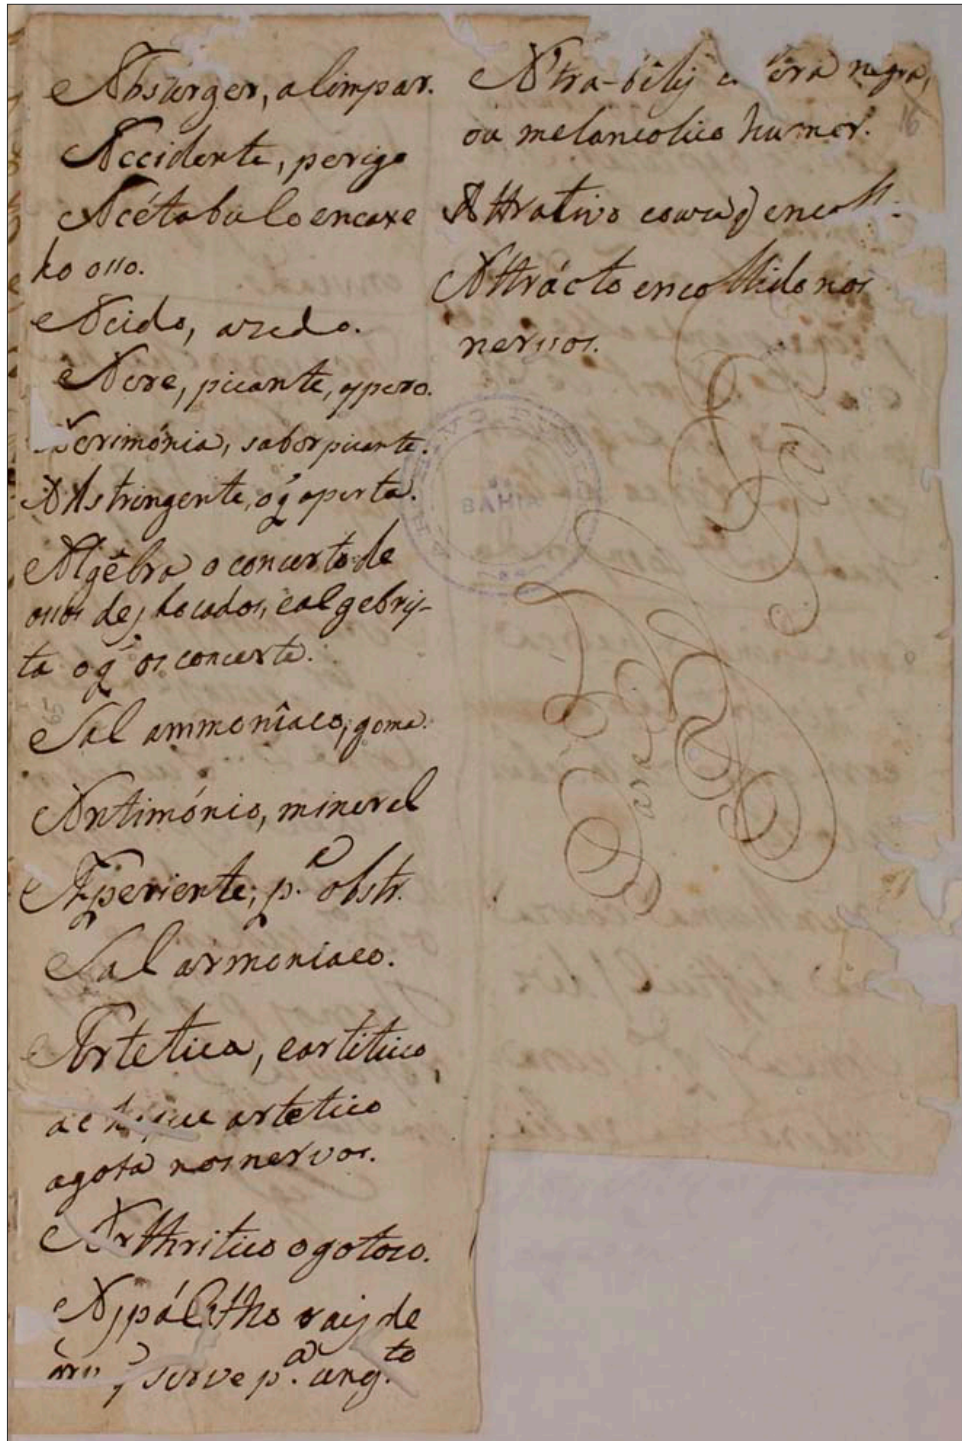 Absterger, alimpar.
Accidente, perigo
Acétabulo encaxe
do osso.
Acido, azedo.
Acre, picante, aspero.
Acrimónia, sabor picante.
Adstringente, o q̃ aperta.
Algébra o concerto de
ossos deslocados, e algebris-
ta o q̃ os concerta.
65
Sal ammonîaco, goma.
Antimónio, mineral
Aperiente; p.ª obstr.
Sal armoniaco.
Artetica, e artitico
artetico
a gota nos nervos.
Arthritico o gotozo.
Aspálatho rais de
q̃ serve p.ª ung.to
Atra-bilis negra,
16
ou melancolico humor.
Attrativo couza q̃
Attrácto encolhido nos
nervos.
BAHIA